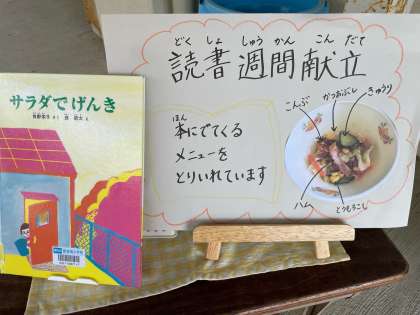 サラダでげんき
角野栄子 さく 長 新太 え
どく しょ しゅう かん こん だて
読書週間献立
ほん
本にでてくる
メニューを
とりいれています
こんぶ
かつおぶし
きゅうり
ハム
とうもろこし